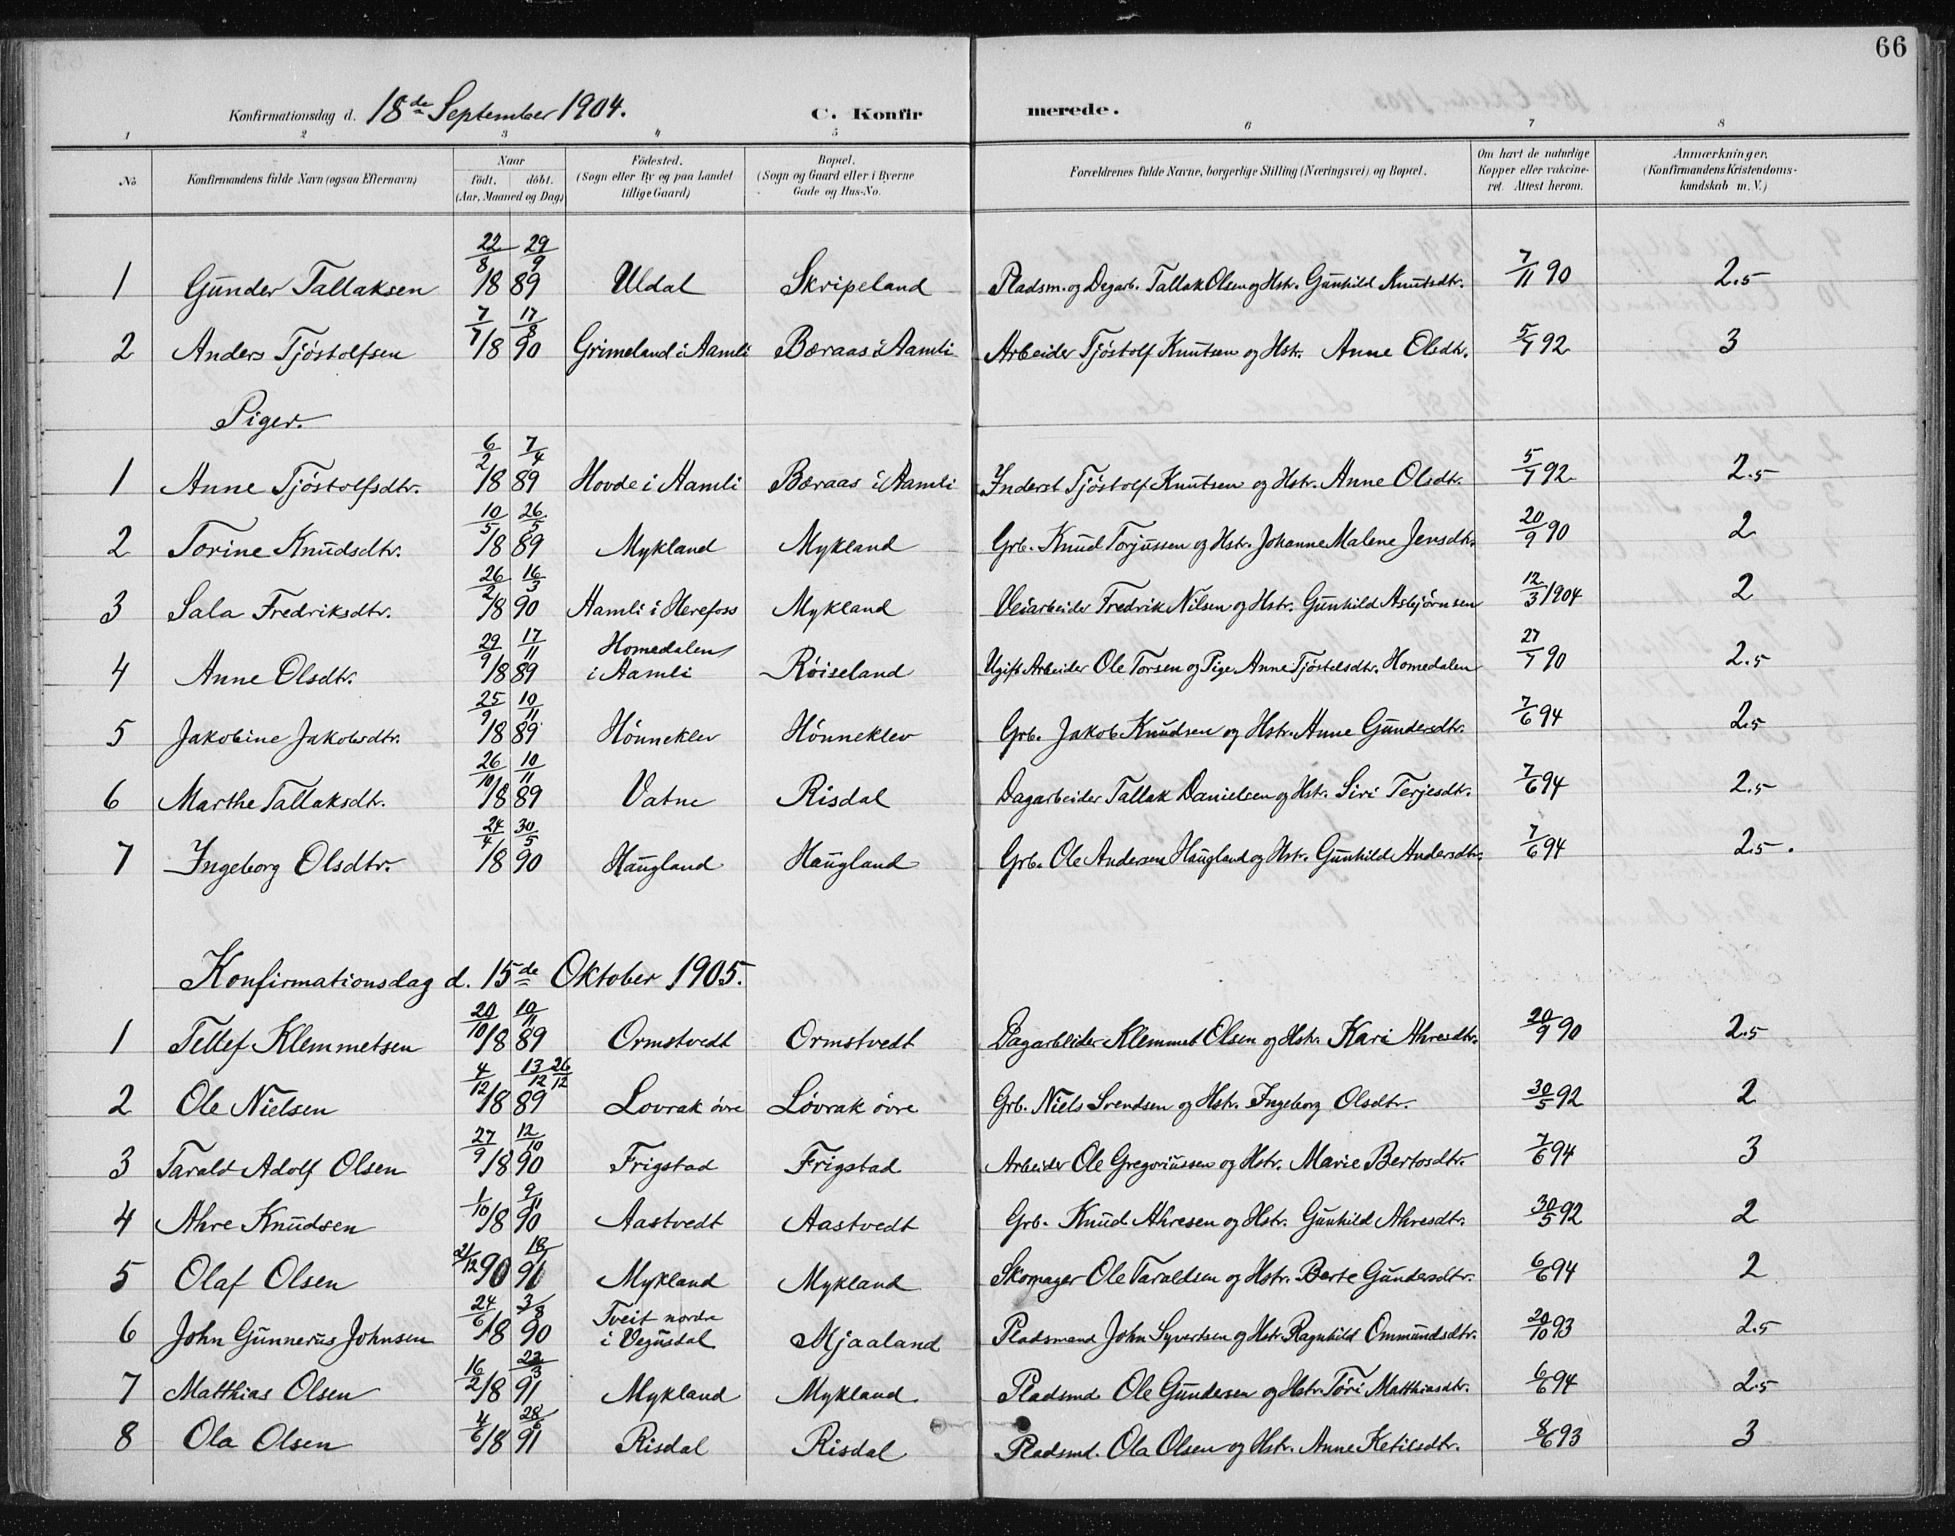 66
Konfirmationsdag d. 18de September 1904. C. Konfirmerede.
1 2 3 4 5 6 7 8
No Konfirmandens fulde Navn (ogsaa Efternavn) Naar født. døbt. (Aar, Maaned og Dag) Fødested. (Sogn eller By og paa Landet tillige Gaard) Bopæl. (Sogn og Gaard eller i Byerne Gade og Hus-No. Forældrenes fulde Navne, borgerlige Stilling (Næringsvei) og Bopæl. Om havt de naturlige Kopper eller vakcineret. Attest herom. Anmærkninger. (Konfirmandens Kristendomskundskab m. V.)
1 Gunder Tallaksen 22/8 1889 29/9 Uldal Skripeland Pladsm. og Dagarb. Tallak Olsen og Hstr. Gunhild Knutsdtr. 7/11 90 2.5
2 Anders Tjöstolfsen 7/7 1890 17/8 Grimeland i Aamli Bæraas i Aamli Arbeider Tjöstolf Knutsen og Hstr. Anne Olsdtr. 5/7 92 3
Piger.
1 Anne Tjöstolfsdtr. 6/2 1889 7/4 Hovde i Aamli Bæraas i Aamli Inderst Tjöstolf Knutsen og Hstr. Anne Olsdtr. 5/7 92 2.5
2 Torine Knudsdtr. 10/5 1889 26/5 Mykland Mykland Grb. Knud Torjussen og Hstr. Johanne Malene Jensdtr. 20/9 90 2
3 Sala Fredriksdtr. 26/2 1890 16/3 Aamli i Herefoss Mykland Veiarbeider Fredrik Nilsen og Hstr. Gunhild Asbjörnsen 12/3 1904 2
4 Anne Olsdtr. 29/9 1889 17/11 Homedalen i Aamli Röiseland Ugift Arbeider Ole Torsen og Pige Anne Tjöstelsdtr. Homedalen 27/7 90 2.5
5 Jakobine Jakobsdtr. 25/9 1889 10/11 Hönneklev Hönneklev Grb. Jakob Knudsen og Hstr. Anne Gundersdtr. 7/6 94 2.5
6 Marthe Tallaksdtr. 26/10 1889 10/11 Vatne Risdal Dagarbeider Tallak Danielsen og Hstr. Siri Terjesdtr. 7/6 94 2.5
7 Ingeborg Olsdtr. 24/4 1890 30/5 Haugland Haugland Grb. Ole Andersen Haugland og Hstr. Gunhild Andersdtr. 7/6 94 2.5.
Konfirmationsdag d. 15de Oktober 1905.
1 Tellef Klemmetsen 20/10 1889 10/11 Ormstvedt Ormstvedt Dagarbeider Klemmet Olsen og Hstr. Kari Ahresdtr. 20/9 90 2.5
2 Ole Nielsen 4/12 1889 13/12 26/12 Lovrak övre Lövrak övre Grb. Niels Svendsen og Hstr. Ingeborg Olsdtr. 30/5 92 2
3 Tarald Adolf Olsen 27/9 1890 12/10 Frigstad Frigstad Arbeider Ole Gregoriussen og Hstr. Marie Bertosdtr. 7/6 94 3
4 Ahre Knudsen 1/10 1890 9/11 Aastvedt Aastvedt Grb. Knud Ahresen og Hstr. Gunhild Ahresdtr. 30/5 92 2
5 Olaf Olsen 21/12 90 18/1 91 Mykland Mykland Skomager Ole Taraldsen og Hstr. Berte Gundersdtr. 6/6 94 2
6 John Gunnerus Johnsen 24/6 1890 3/8 Tveit nordre i Vegusdal Mjaaland Pladsmand John Syvertsen og Hstr. Ragnhild Ommundsdtr. 20/10 93 2.5
7 Matthias Olsen 16/2 1891 22/3 Mykland Mykland Pladsmd. Ole Gundersen og Hstr. Töri Matthiasdtr. 6/6 94 2.5
8 Ola Olsen 4/6 1891 28/6 Risdal Risdal Pladsmd. Ola Olsen og Hstr. Anne Ketilsdtr. 8/6 93 3